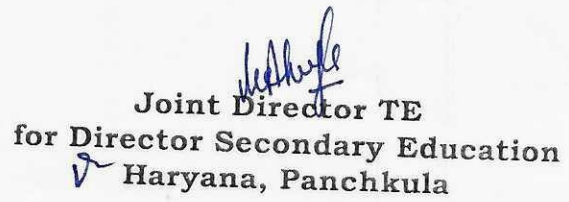 Joint Director TE
for Director Secondary Education
Haryana, Panchkula